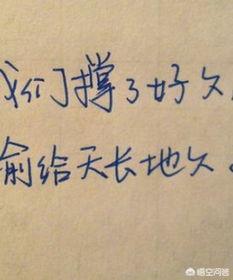 我们撑了好久
输给天长地久。
悟空问答